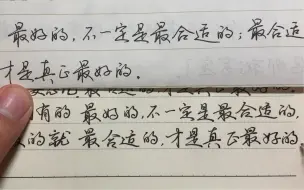 最好的，不一定是最合适的；最合适
才是真正最好的.
有的 最好的，不一定是最合适的，
的就 最合适的，才是真正最好的